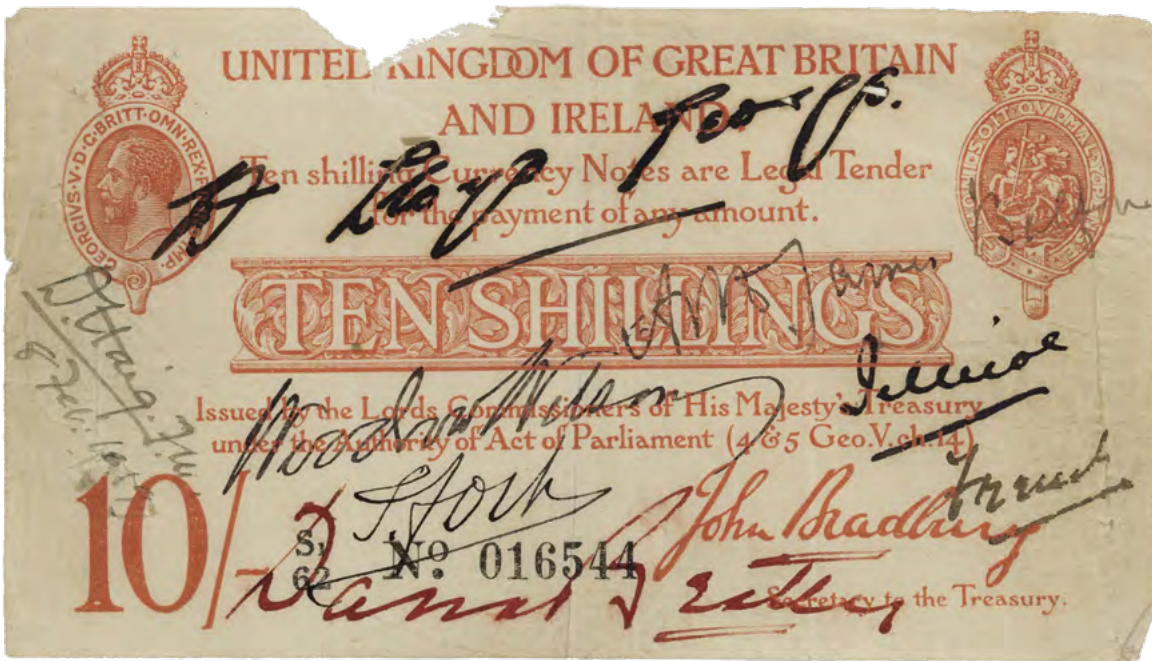 UNITED KINGDOM OF GREAT BRITAIN
AND IRELAND.
GEORGIVS·V·D·G·BRITT·OMN·REX·F· IMP.
Ten shilling Currency Notes are Legal Tender
for the payment of any amount.
D Lloyd George.
TEN SHILLINGS
D. Haig. F.M.
8 Feb:
Jellicoe
Woodrow Wilson
Issued by the Lords Commissioners of His Majesty's Treasury
under the Authority of Act of Parliament (4 & 5 Geo.V.ch.14).
French
F. Foch
10/-
S.
62
No. 016544
John Bradbury
Secretary to the Treasury.
David Beatty